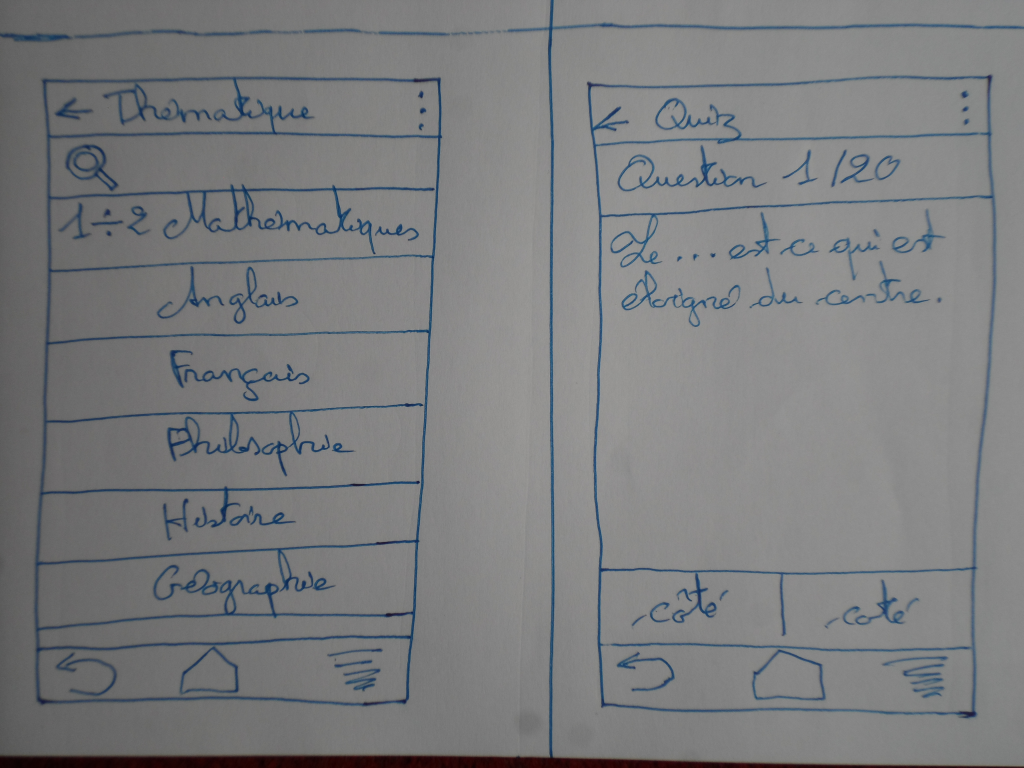 Thématique
1÷2 Mathématiques
Anglais
Français
Philosophie
Histoire
Géographie
Quiz
Question 1/20
Le ... est ce qui est
éloigné du centre.
côté
coté